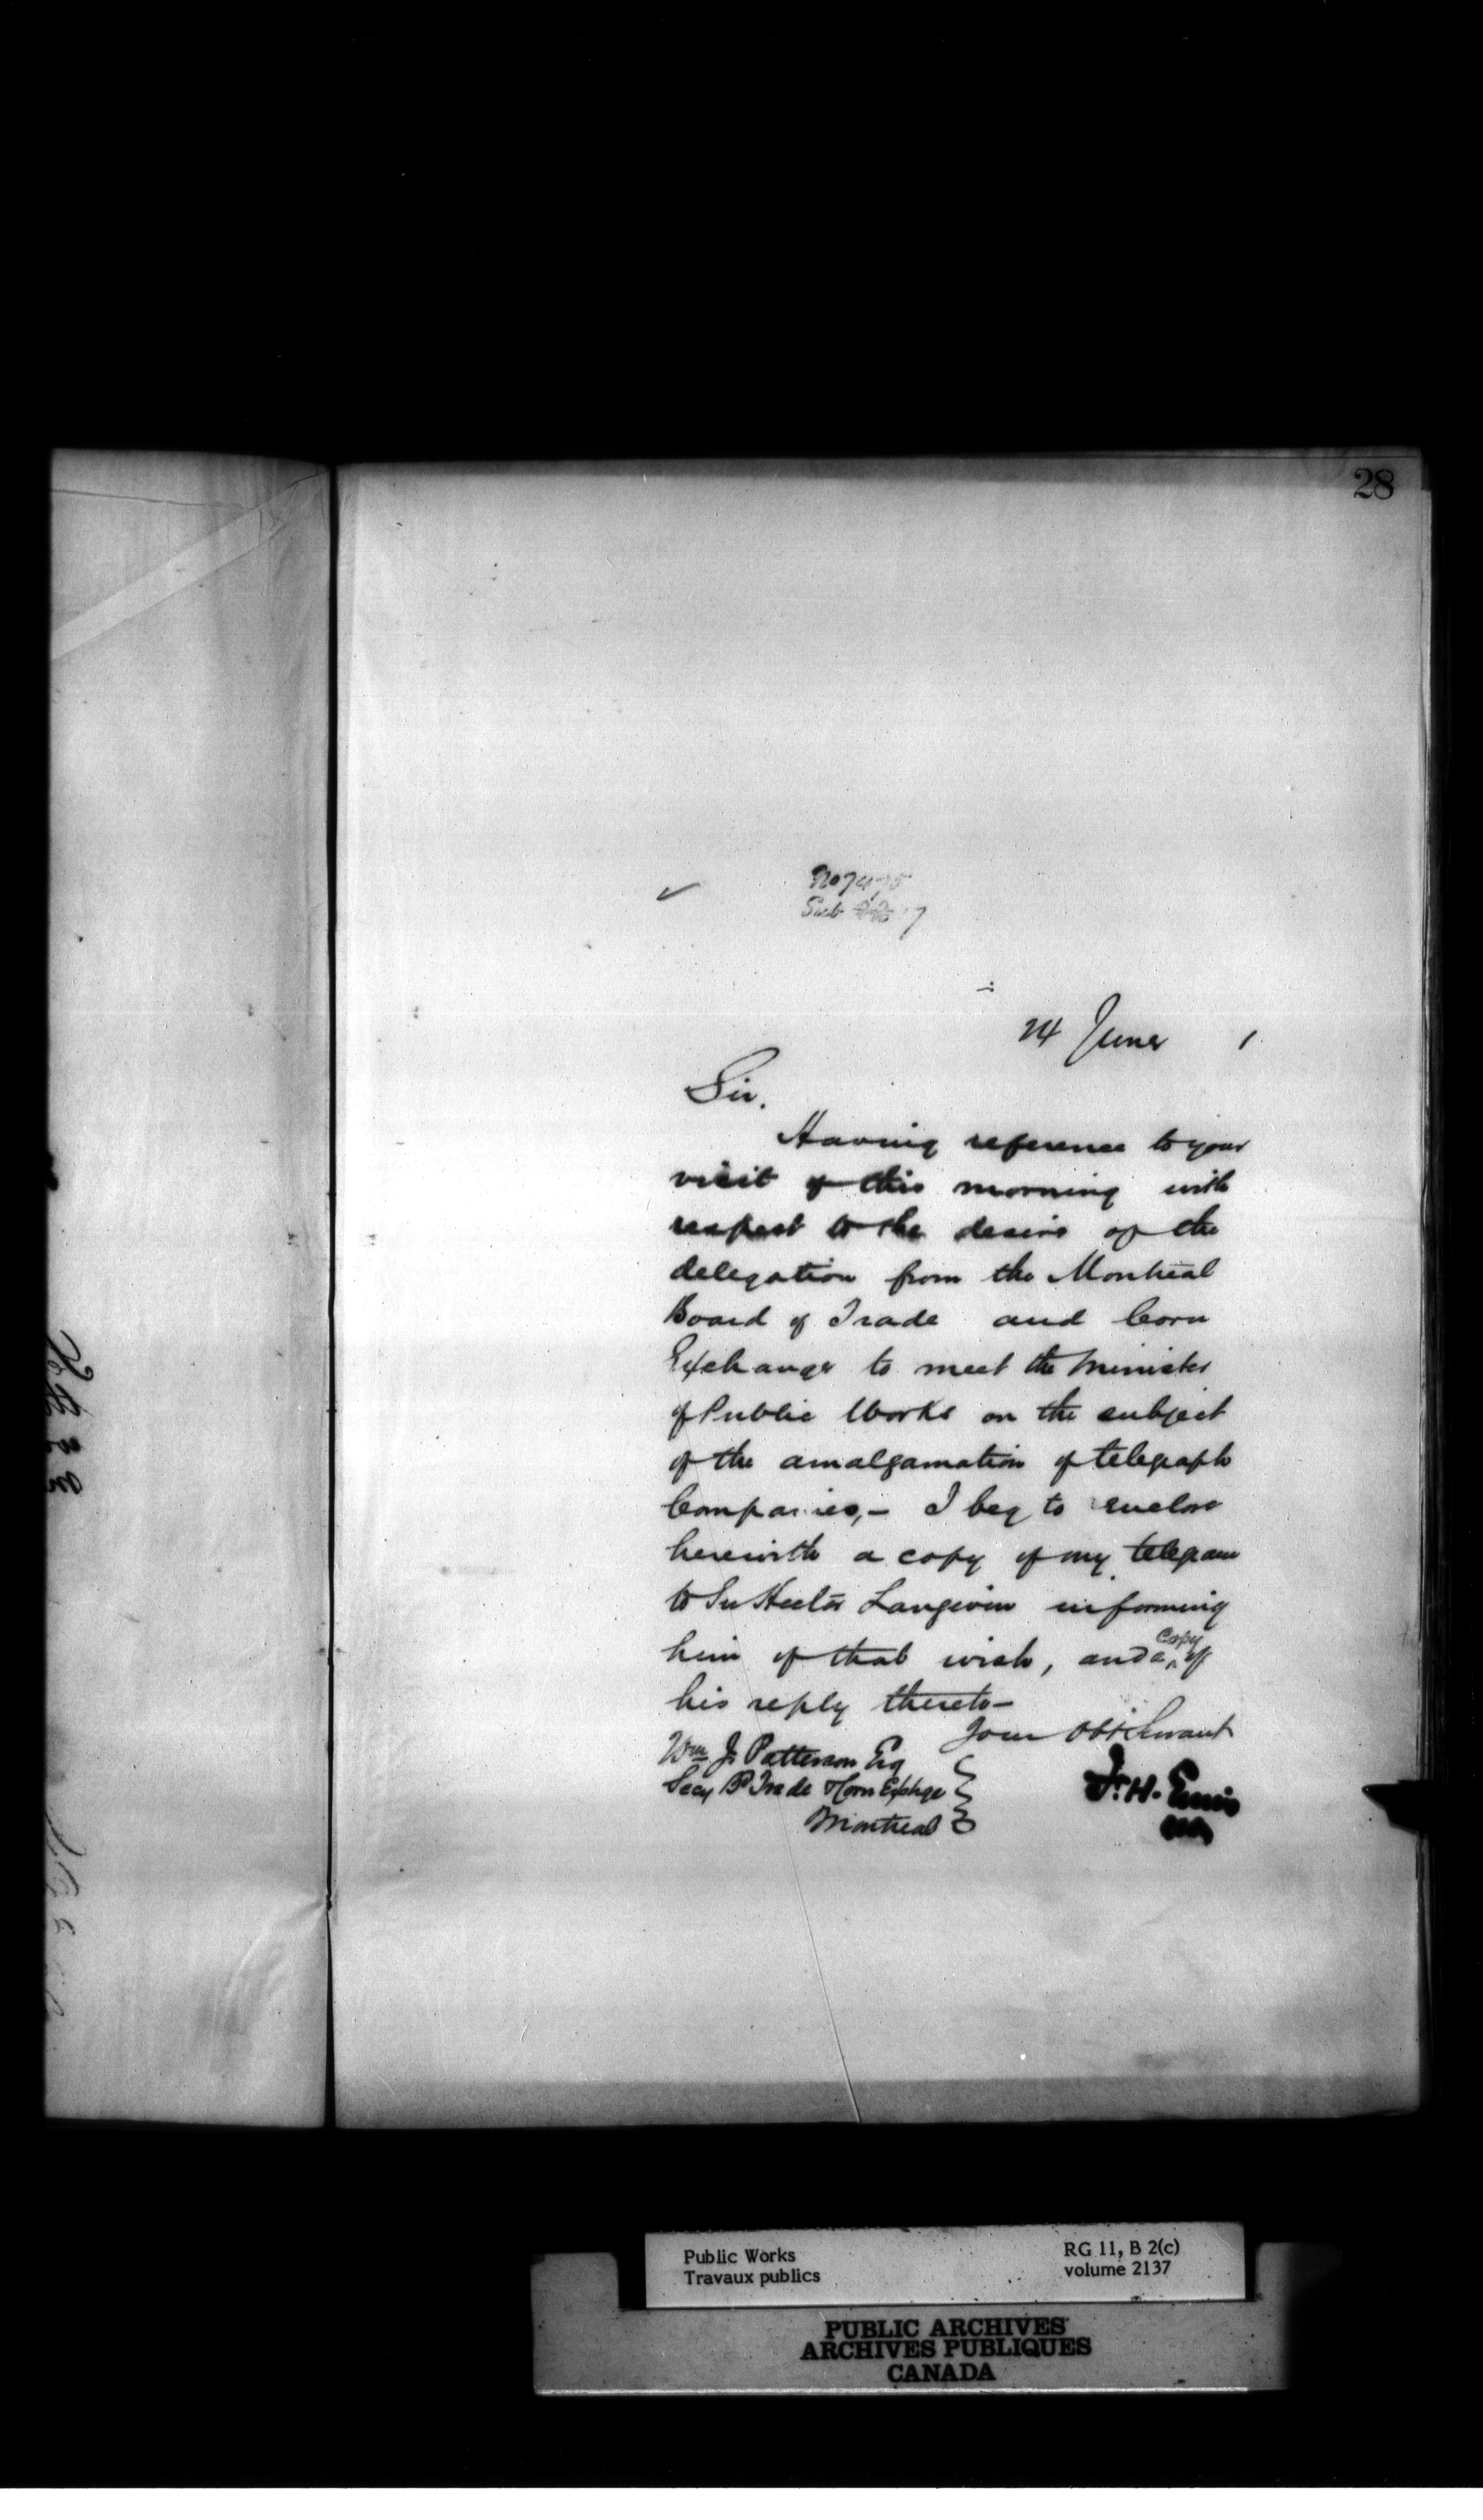 28
No 7475
Sub 7
24 June 1
Sir.
Having reference to your
visit of this morning with
respect to the desire of the
delegation from the Montreal
Board of Trade and Corn
Exchange to meet the Minister
of Public Works on the subject
of the amalgamation of telegraph
Companies,- I beg to enclose
herewith a copy of my telegram
to Sir Hector Langevin informing
him of that wish, and a copy of
his reply thereto-
Your Obt Servant
Wm J. Patterson Esq
Secy B Trade & Corn Exchge
Montreal
F. H. Ennis
Public Works
Travaux publics
RG 11, B 2(c)
volume 2137
PUBLIC ARCHIVES
ARCHIVES PUBLIQUES
CANADA